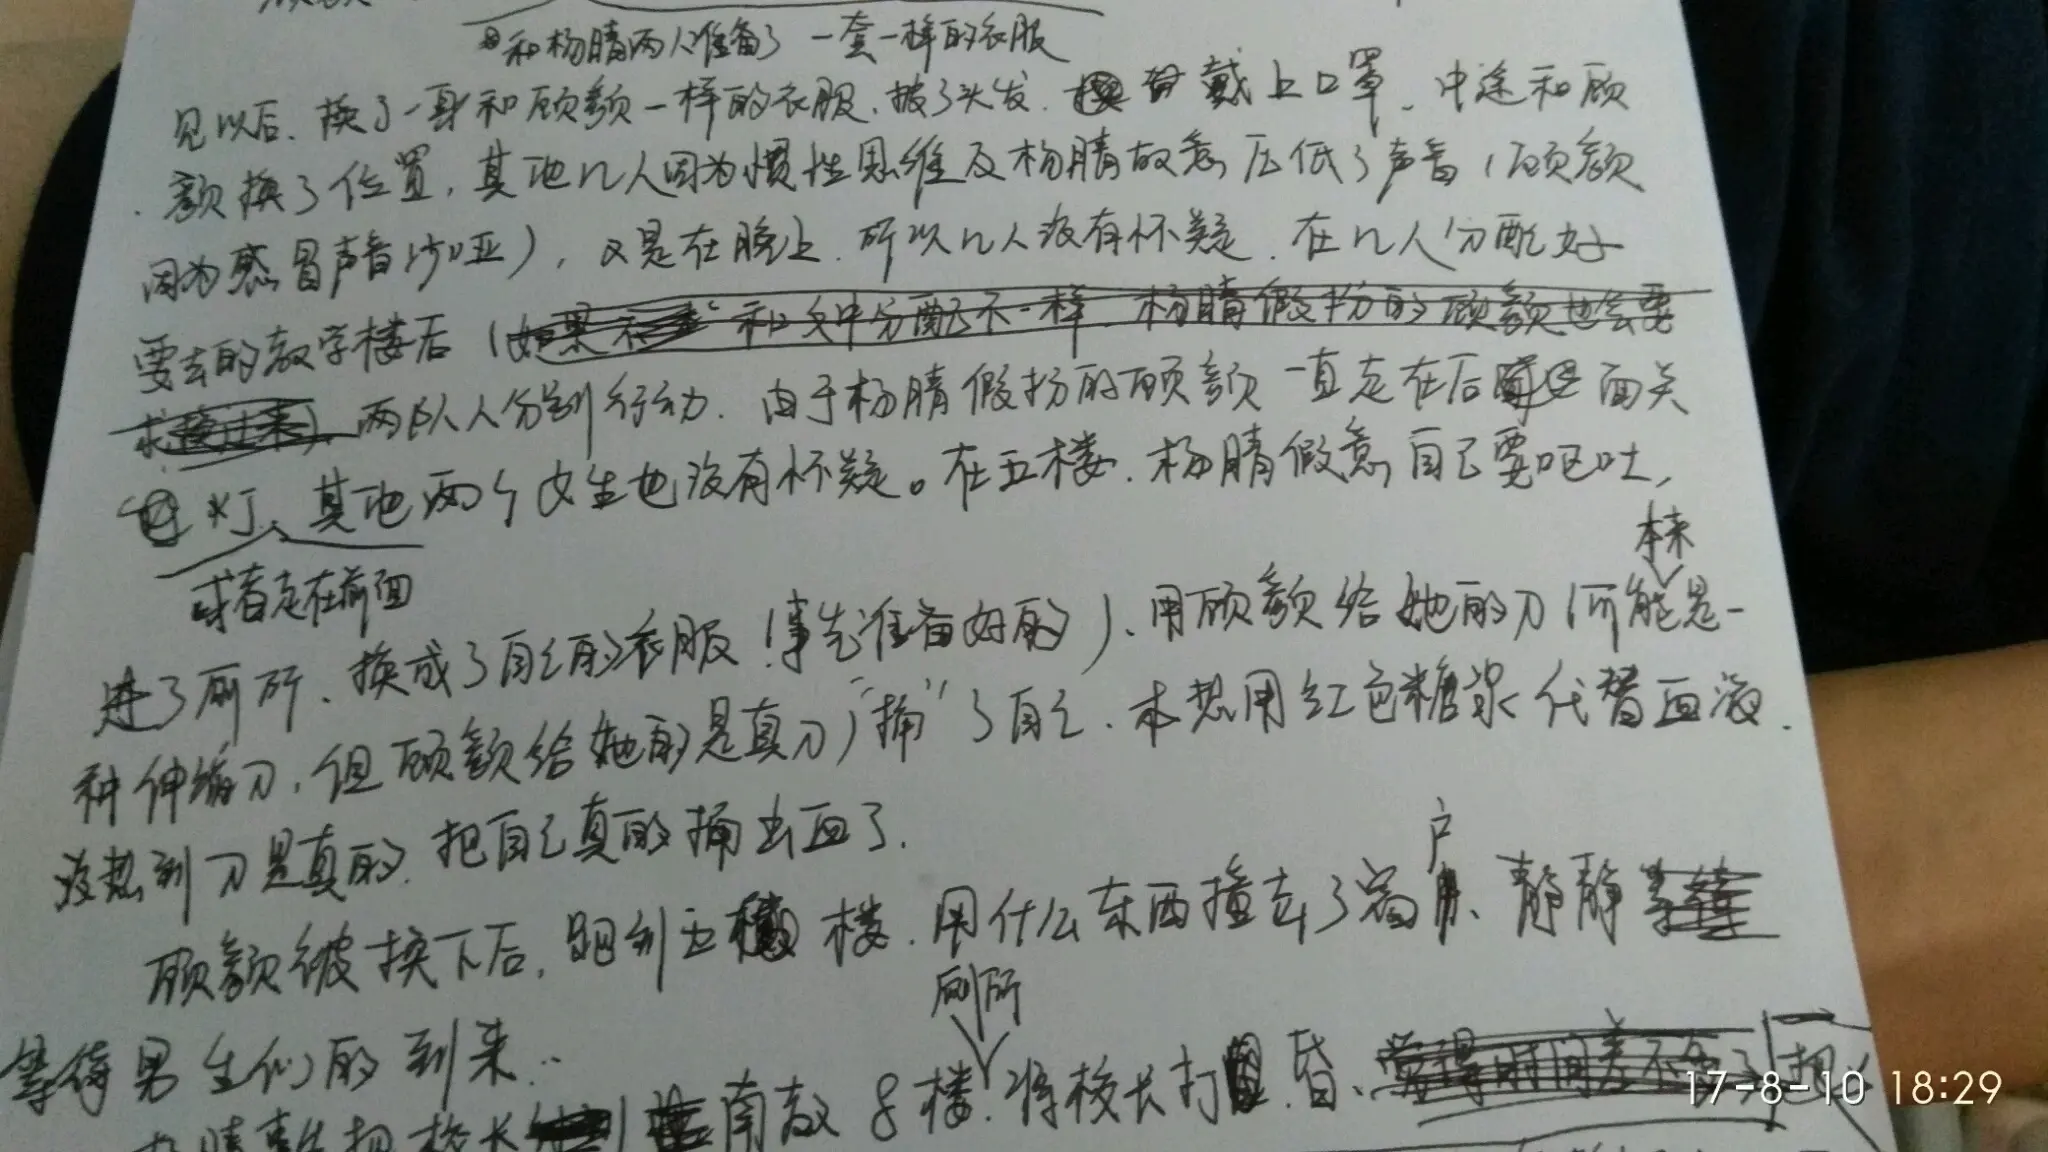 和杨晴两人准备了一套一样的衣服
见以后、换了一身和顾颜一样的衣服、披了头发、戴上口罩、中途和顾
颜换了位置，其他几人因为惯性思维及杨晴故意压低了声音（顾颜
因为感冒声音沙哑），又是在晚上、所以几人没有怀疑、在几人分配好
要去的教学楼后（如果不 和文中分配不一样、杨晴假扮的顾颜也会要
求换过来）、两队人分别行动、由于杨晴假扮的顾颜一直走在后面关
灯、其他两个女生也没有怀疑。在五楼、杨晴假意自己要呕吐，
本来
或者走在前面
进了厕所、换成了自己的衣服（事先准备好的）、用顾颜给她的刀（可能是一
种伸缩刀，但顾颜给她的是真刀）“捅”了自己、本想用红色糖浆代替血液、
没想到刀是真的、把自己真的捅出血了.
户
顾颜被换下后，跟到五楼、用什么东西撞击了窗、静静
厕所
等待男生们的到来..
南教8楼、将校长打昏、觉得时间差不多了
17-8-10 18:29